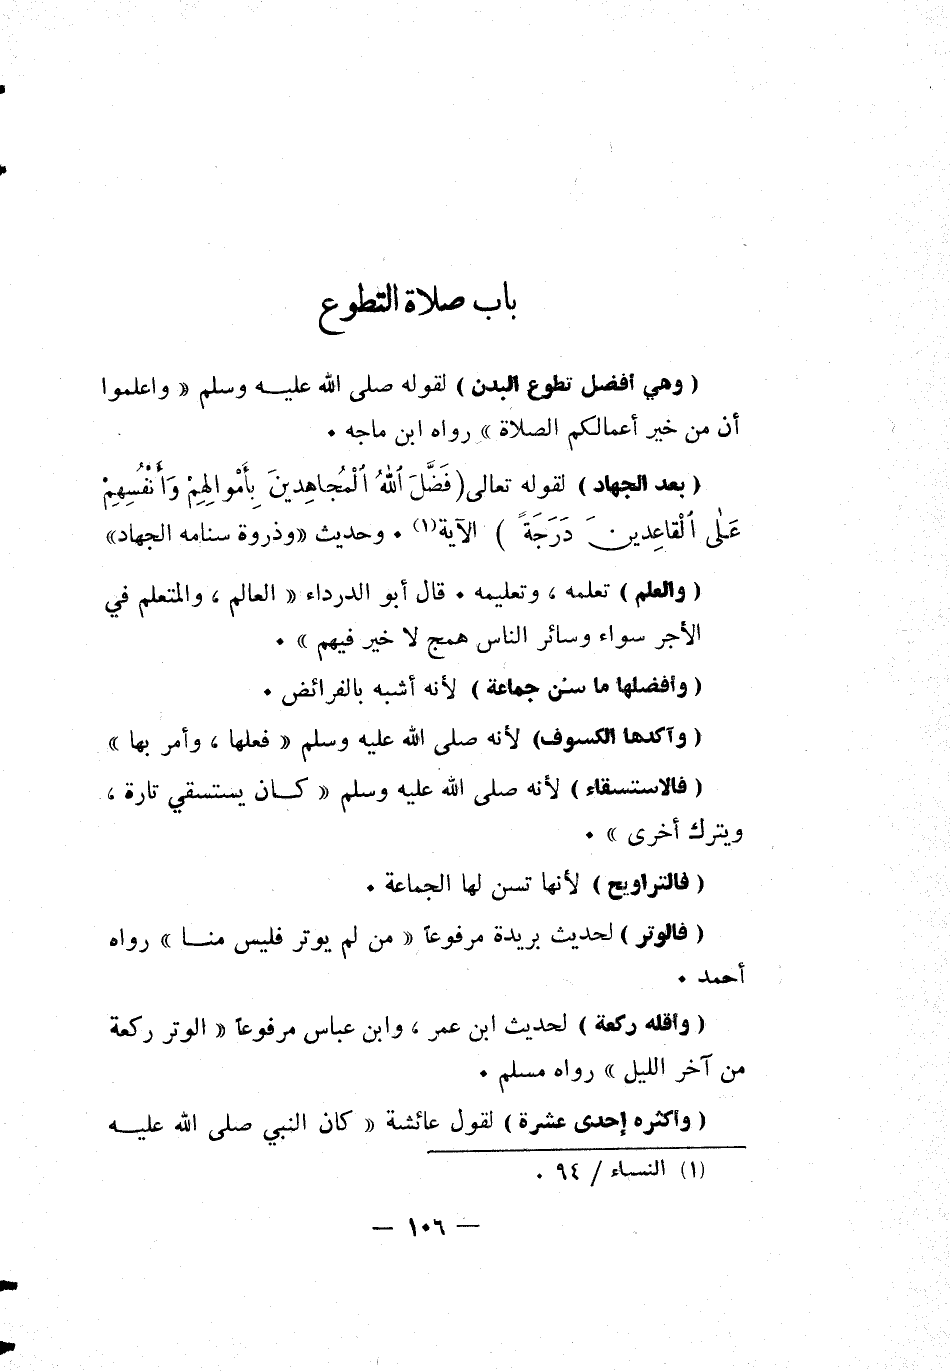 باب صلاة التطوع
( وهي أفضل تطوع البدن ) لقوله صلى الله عليـــه وسلم « واعلموا
أن من خير أعمالكم الصلاة » رواه ابن ماجه .
( بعد الجهاد ) لقوله تعالى (فَضَّلَ ٱللهُ ٱلْمُجاهِدينَ بِأَمْوالِهِمْ وَأَنْفُسِهِمْ
عَلٰى ٱلْقاعِدينَ دَرَجَةً ) الآية(١) . وحديث «وذروة سنامه الجهاد»
( والعلم ) تعلمه ، وتعليمه . قال أبو الدرداء « العالم ، والمتعلم في
الأجر سواء وسائر الناس همج لا خير فيهم » .
( وأفضلها ما سن جماعة ) لأنه أشبه بالفرائض .
( وآكدها الكسوف) لأنه صلى الله عليه وسلم « فعلها ، وأمر بها »
( فالاستسقاء ) لأنه صلى الله عليه وسلم « كـــان يستسقي تارة ،
ويترك أخرى » .
( فالتراويح ) لأنها تسن لها الجماعة .
( فالوتر ) لحديث بريدة مرفوعاً « من لم يوتر فليس منـــا » رواه
أحمد .
( وأقله ركعة ) لحديث ابن عمر ، وابن عباس مرفوعاً « الوتر ركعة
من آخر الليل » رواه مسلم .
( وأكثره إحدى عشرة ) لقول عائشة « كان النبي صلى الله عليـــه
(١) النساء / ٩٤ .
— ١٠٦ —